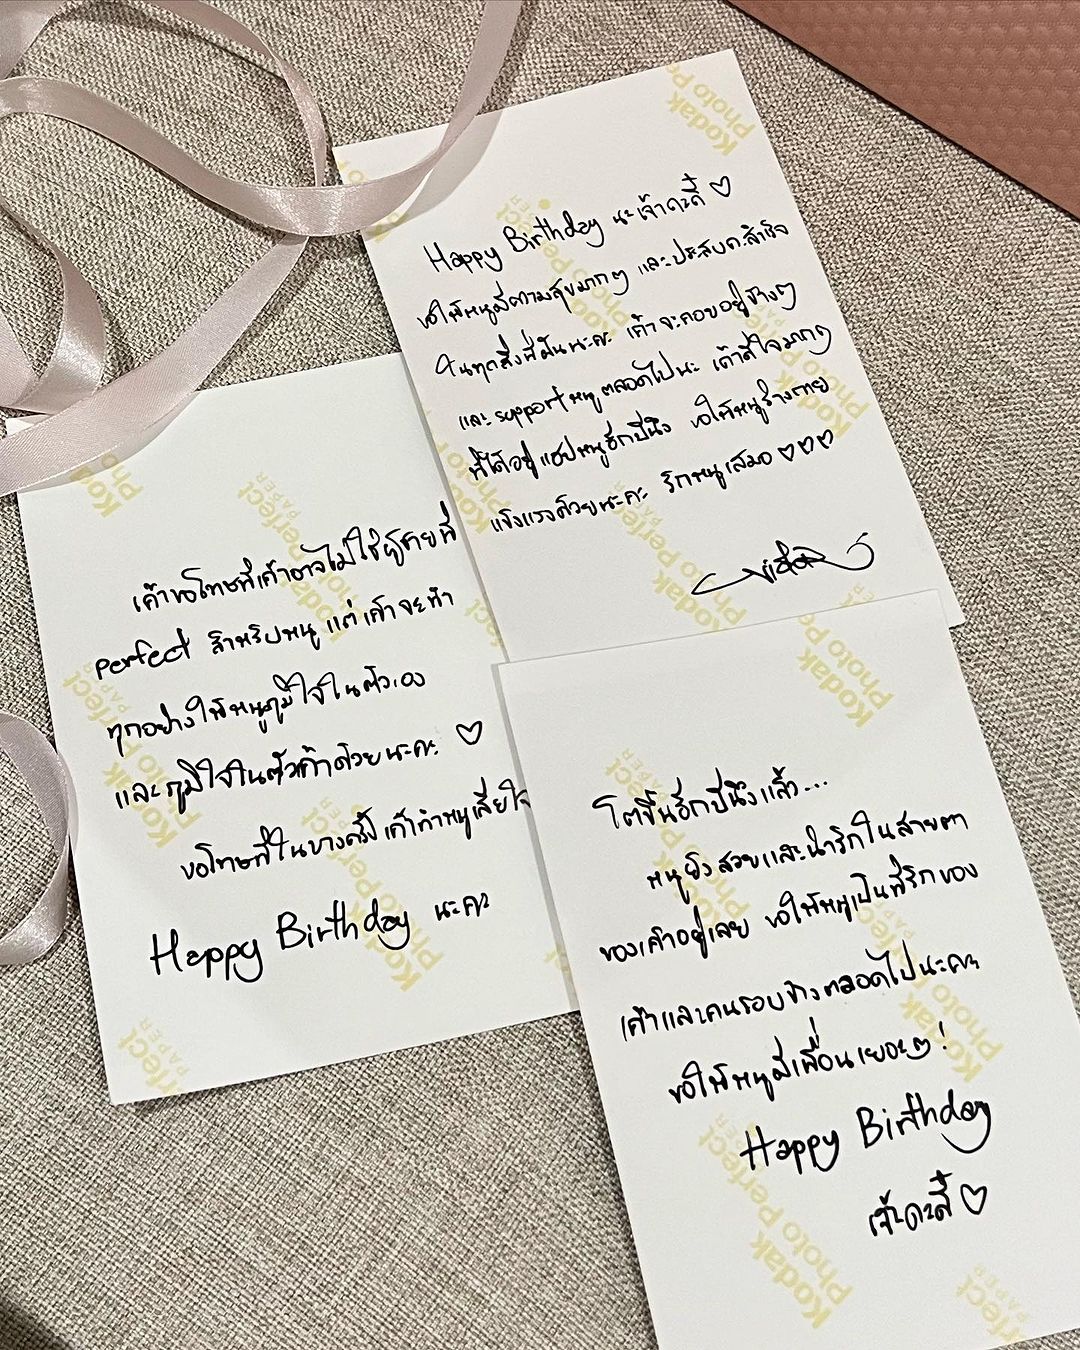 Happy Birthday นะเจ้าคะดี๋ ♡
ขอให้หนูมีความสุขมากๆ และประสบคสำเร็จ
ในทุกสิ่งที่ฝันนะคะ เค้าจะคอยอยู่ข้างๆ
และ support หนูตลอดไปนะ เค้าดีใจมากๆ
ที่ได้อยู่ HBD หนูอีกปีนึง ขอให้หนูร่างกาย
แข็งแรงด้วยนะคะ รักหนูเสมอ ♡♡♡
เค้าขอโทษที่เค้าอาจไม่ใช่ผู้ชายที่
perfect สำหรับหนู แต่เค้าจะทำ
ทุกอย่างให้หนูภูมิใจในตัวเอง
และภูมิใจในตัวเค้าด้วยนะคะ ♡
ขอโทษที่ในบางครั้ง เค้าทำหนูเสียใจ
Happy Birthday นะคะ
โตขึ้นอีกปีนึงแล้ว...
หนูยังสวยและน่ารักในสายตา
ของเค้าอยู่เลย ขอให้หนูเป็นที่รักของ
เค้าและคนรอบข้างตลอดไปนะคะ
ขอให้หนูมีเพื่อนเยอะๆ!
Happy Birthday
เจ้าคะดี๋ ♡
Kodak
Photo Perfect
PAPER